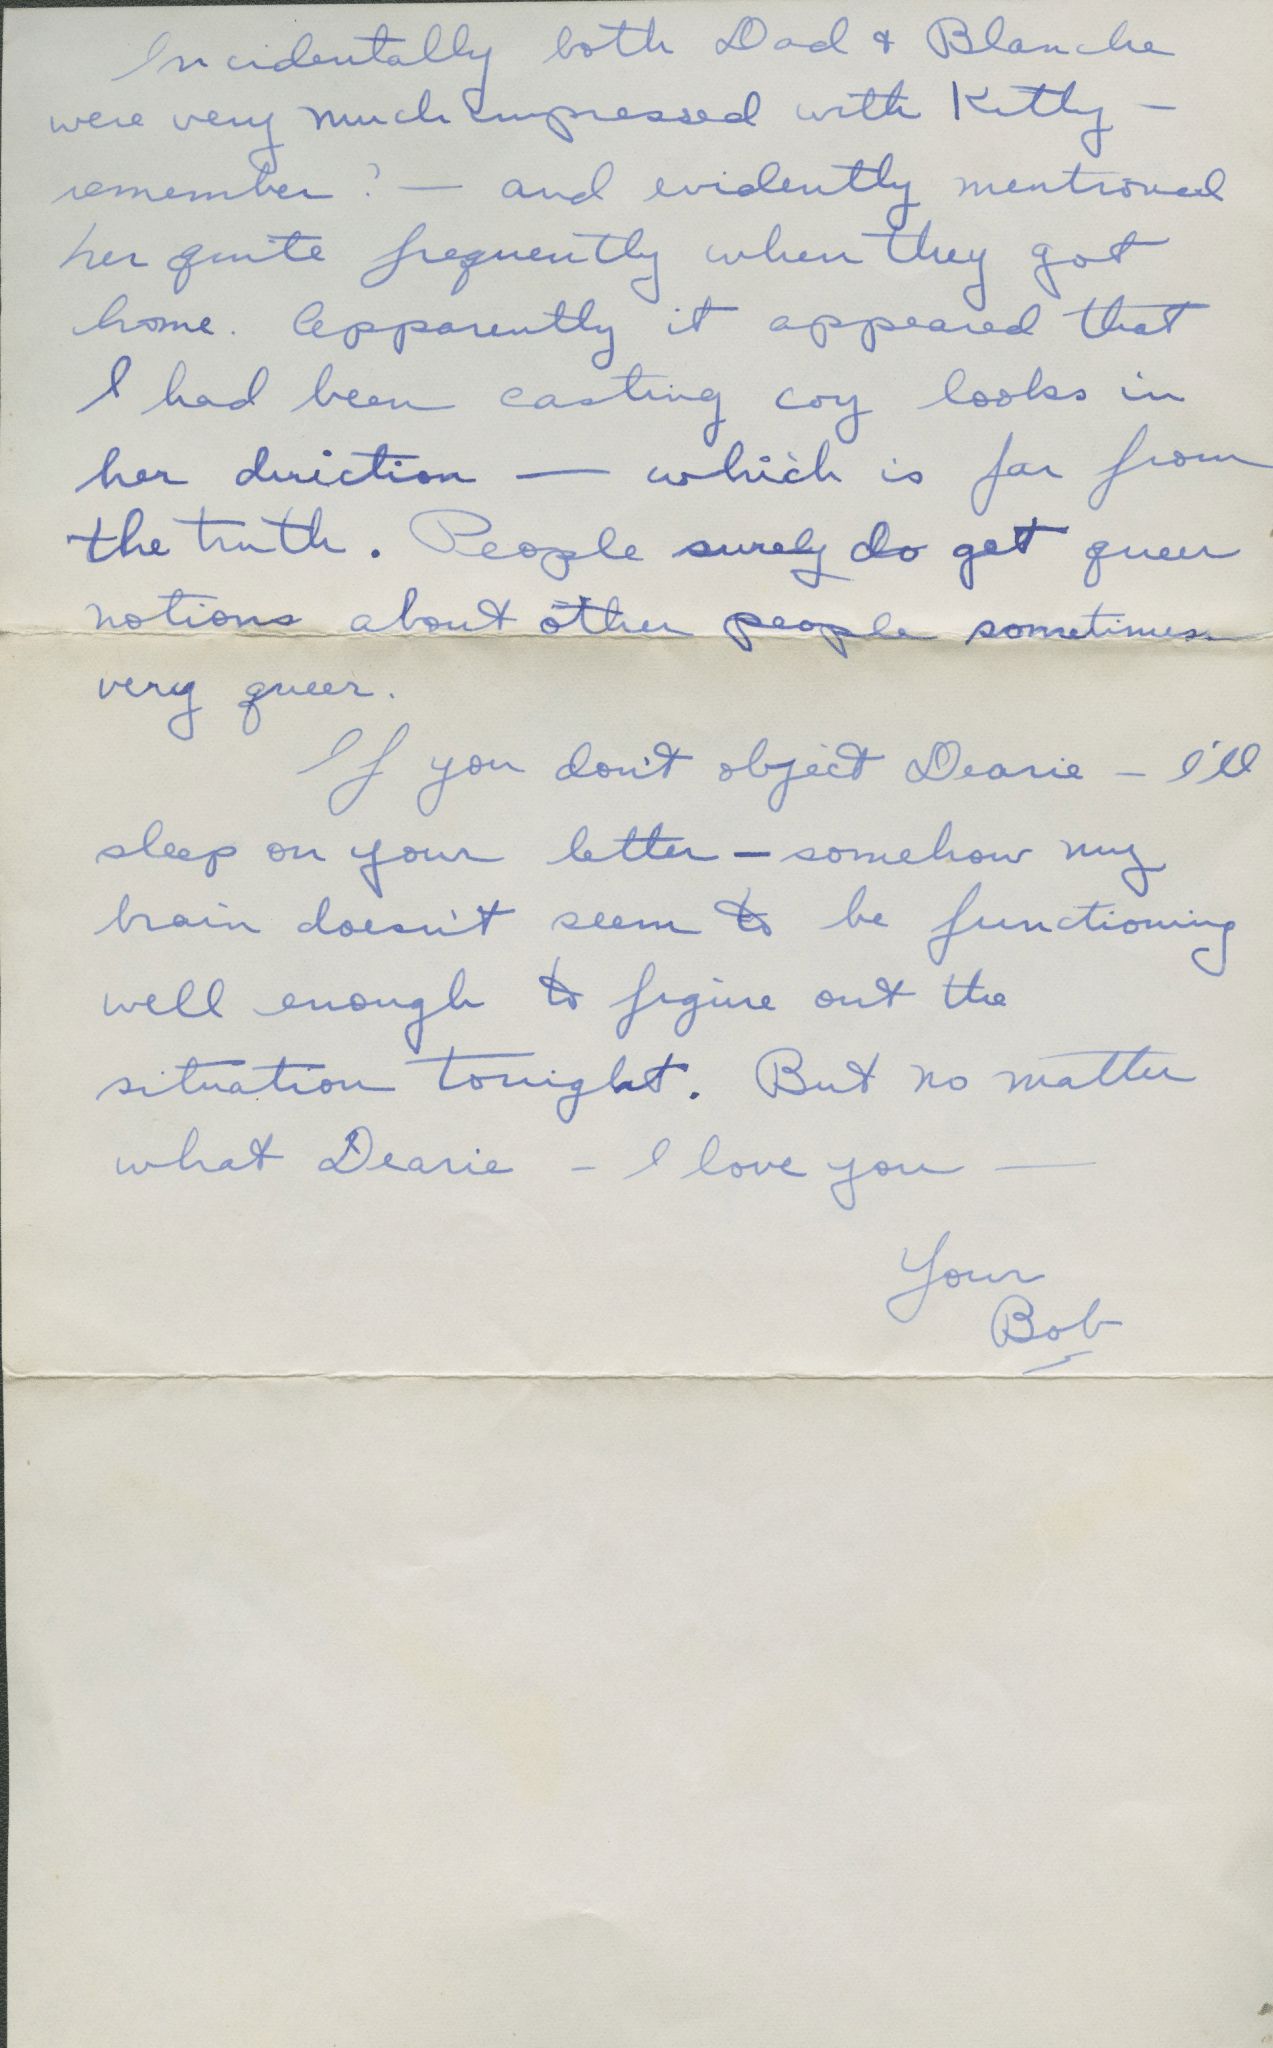 Incidentally both Dad & Blanche
were very much impressed with Kitty –
remember? — and evidently mentioned
her quite frequently when they got
home. Apparently it appeared that
I had been casting coy looks in
her direction — which is far from
the truth. People surely do get queer
notions about other people sometimes
very queer.
If you don't object Dearie – I'll
sleep on your letter – somehow my
brain doesn't seem to be functioning
well enough to figure out the
situation tonight. But no matter
what Dearie – I love you —
Your
Bob